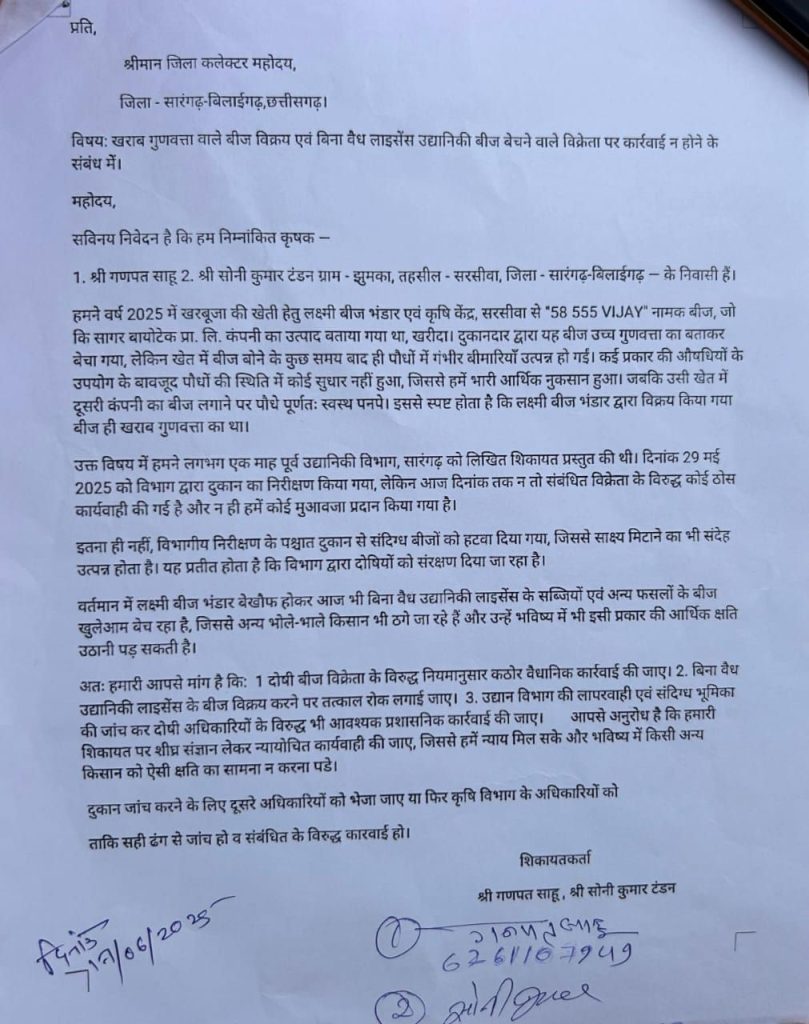 प्रति,
श्रीमान जिला कलेक्टर महोदय,
जिला - सारंगढ़-बिलाईगढ़,छत्तीसगढ़।
विषय: खराब गुणवत्ता वाले बीज विक्रय एवं बिना वैध लाइसेंस उद्यानिकी बीज बेचने वाले विक्रेता पर कार्रवाई न होने के
संबंध में।
महोदय,
सविनय निवेदन है कि हम निम्नांकित कृषक –
1. श्री गणपत साहू 2. श्री सोनी कुमार टंडन ग्राम - झुमका, तहसील - सरसीवा, जिला - सारंगढ़-बिलाईगढ़ – के निवासी हैं।
हमने वर्ष 2025 में खरबूजा की खेती हेतु लक्ष्मी बीज भंडार एवं कृषि केंद्र, सरसीवा से "58 555 VIJAY" नामक बीज, जो
कि सागर बायोटेक प्रा. लि. कंपनी का उत्पाद बताया गया था, खरीदा। दुकानदार द्वारा यह बीज उच्च गुणवत्ता का बताकर
बेचा गया, लेकिन खेत में बीज बोने के कुछ समय बाद ही पौधों में गंभीर बीमारियाँ उत्पन्न हो गईं। कई प्रकार की औषधियों के
उपयोग के बावजूद पौधों की स्थिति में कोई सुधार नहीं हुआ, जिससे हमें भारी आर्थिक नुकसान हुआ। जबकि उसी खेत में
दूसरी कंपनी का बीज लगाने पर पौधे पूर्णतः स्वस्थ पनपे। इससे स्पष्ट होता है कि लक्ष्मी बीज भंडार द्वारा विक्रय किया गया
बीज ही खराब गुणवत्ता का था।
उक्त विषय में हमने लगभग एक माह पूर्व उद्यानिकी विभाग, सारंगढ़ को लिखित शिकायत प्रस्तुत की थी। दिनांक 29 मई
2025 को विभाग द्वारा दुकान का निरीक्षण किया गया, लेकिन आज दिनांक तक न तो संबंधित विक्रेता के विरुद्ध कोई ठोस
कार्यवाही की गई है और न ही हमें कोई मुआवजा प्रदान किया गया है।
इतना ही नहीं, विभागीय निरीक्षण के पश्चात दुकान से संदिग्ध बीजों को हटवा दिया गया, जिससे साक्ष्य मिटाने का भी संदेह
उत्पन्न होता है। यह प्रतीत होता है कि विभाग द्वारा दोषियों को संरक्षण दिया जा रहा है।
वर्तमान में लक्ष्मी बीज भंडार बेखौफ होकर आज भी बिना वैध उद्यानिकी लाइसेंस के सब्जियों एवं अन्य फसलों के बीज
खुलेआम बेच रहा है, जिससे अन्य भोले-भाले किसान भी ठगे जा रहे हैं और उन्हें भविष्य में भी इसी प्रकार की आर्थिक क्षति
उठानी पड़ सकती है।
अतः हमारी आपसे मांग है कि: 1 दोषी बीज विक्रेता के विरुद्ध नियमानुसार कठोर वैधानिक कार्रवाई की जाए। 2. बिना वैध
उद्यानिकी लाइसेंस के बीज विक्रय करने पर तत्काल रोक लगाई जाए। 3. उद्यान विभाग की लापरवाही एवं संदिग्ध भूमिका
की जांच कर दोषी अधिकारियों के विरुद्ध भी आवश्यक प्रशासनिक कार्रवाई की जाए। आपसे अनुरोध है कि हमारी
शिकायत पर शीघ्र संज्ञान लेकर न्यायोचित कार्यवाही की जाए, जिससे हमें न्याय मिल सके और भविष्य में किसी अन्य
किसान को ऐसी क्षति का सामना न करना पडे।
दुकान जांच करने के लिए दूसरे अधिकारियों को भेजा जाए या फिर कृषि विभाग के अधिकारियों को
ताकि सही ढंग से जांच हो व संबंधित के विरुद्ध कारवाई हो।
शिकायतकर्ता
श्री गणपत साहू , श्री सोनी कुमार टंडन
दिनांक
/06/2025
① गनपत साहू
6261107949
② सोनी कुमार